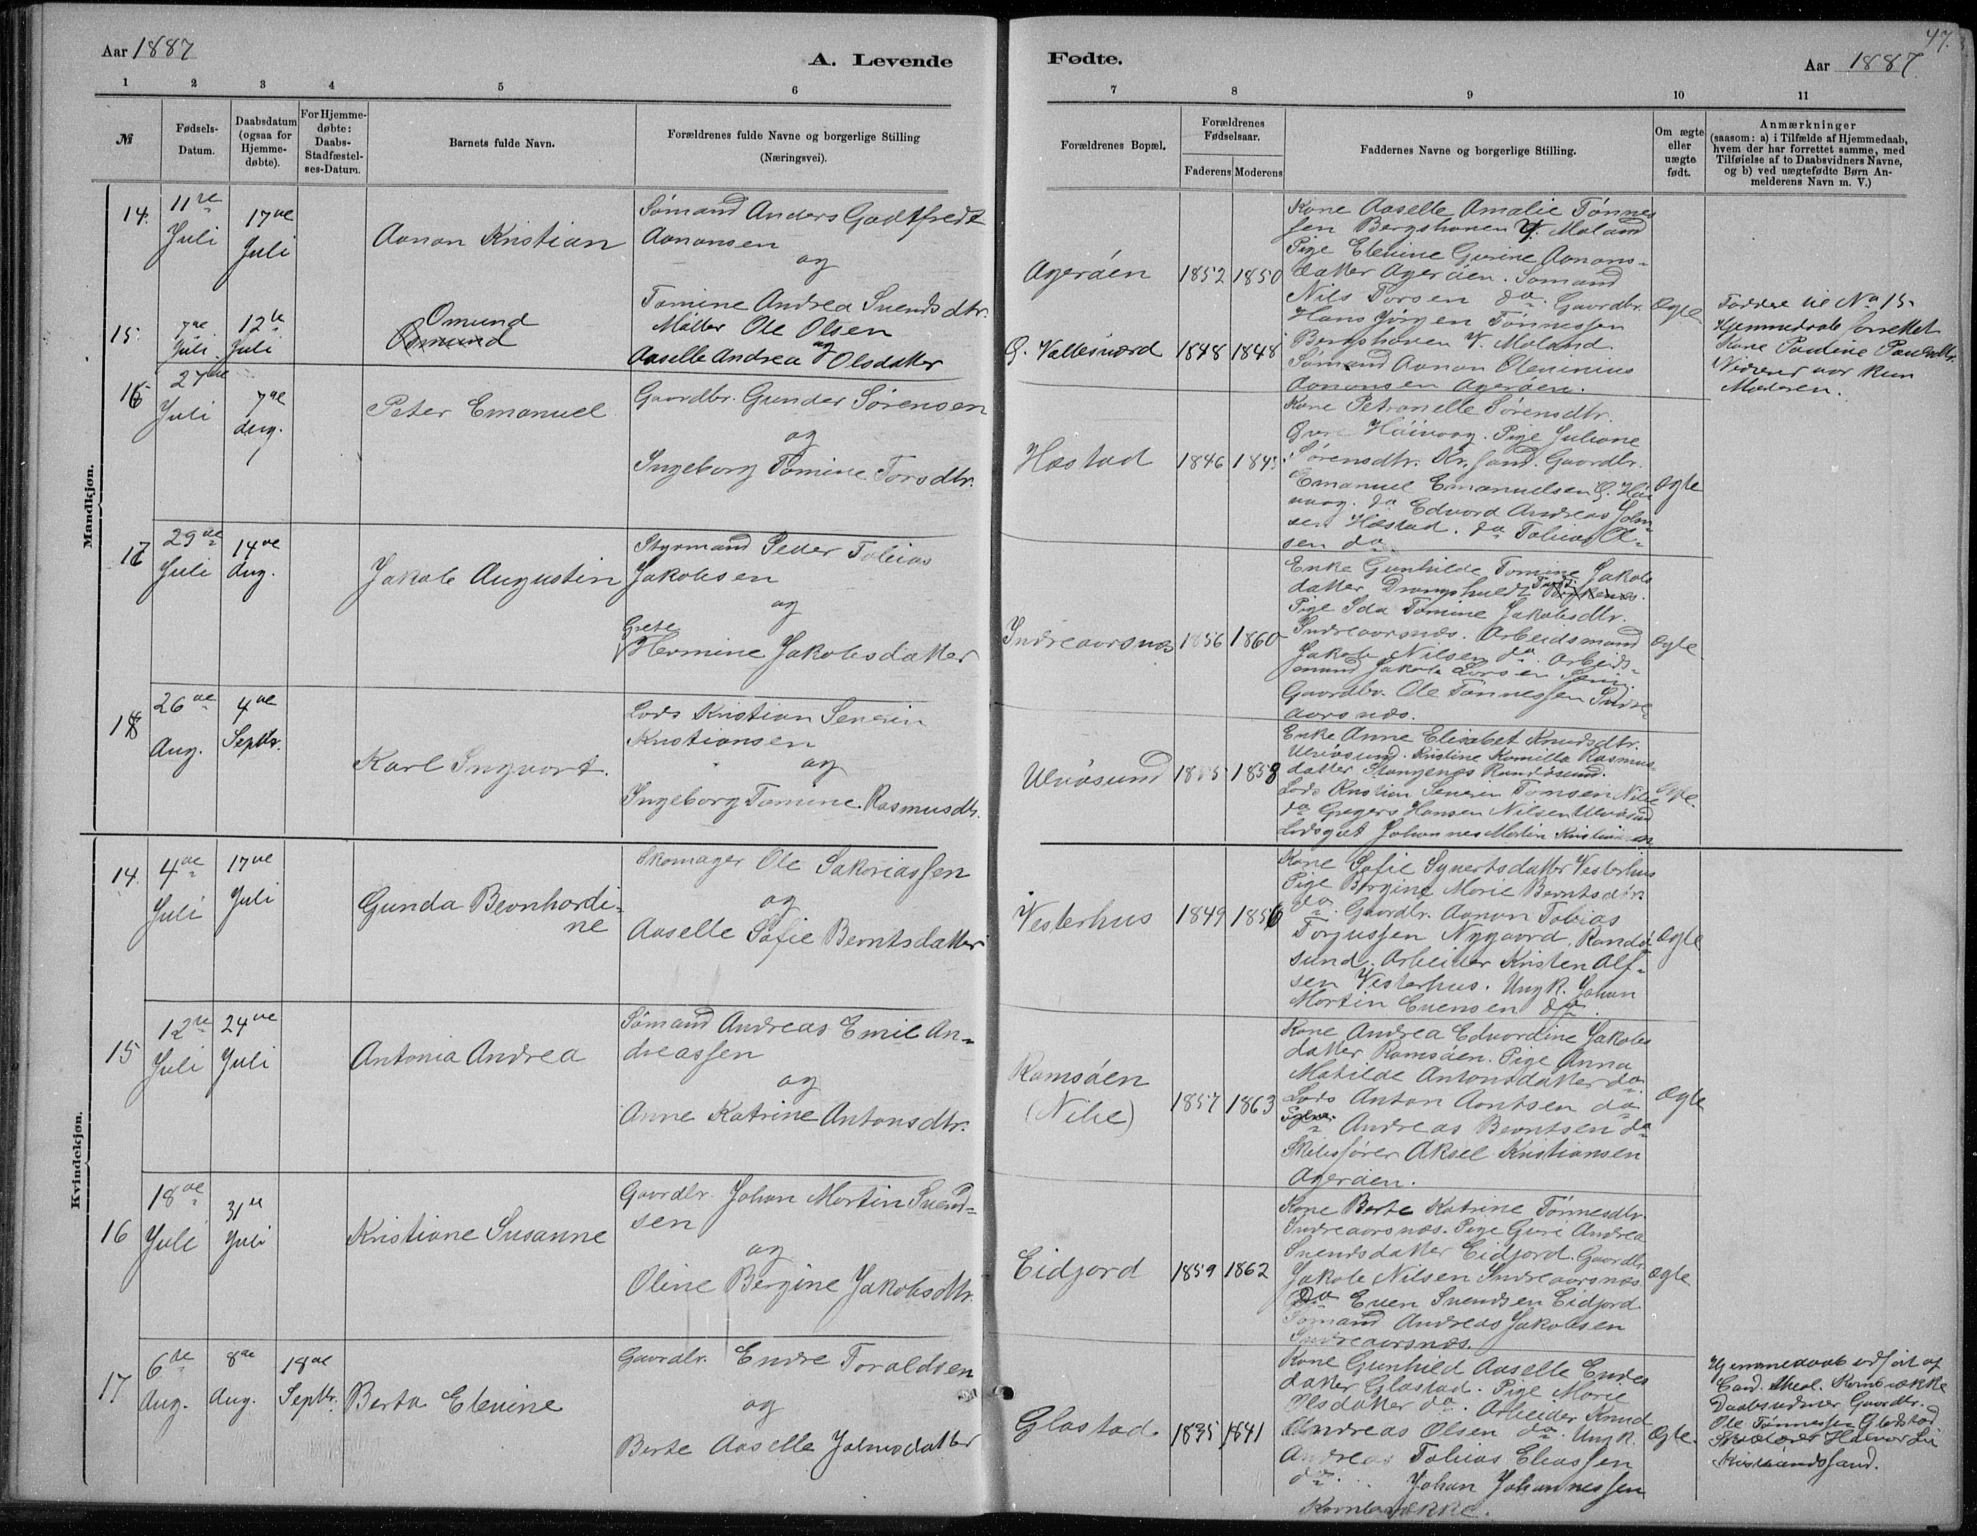 47.
Aar 1887
A. Levende
Fødte.
Aar 1887
1 2 3 4 5 6
7 8 9 10 11
№
Fødsels-
Datum.
Daabsdatum
(ogsaa for
Hjemme-
døbte).
For Hjemme-
døbte:
Daabs-
Stadfæstel-
ses-Datum.
Barnets fulde Navn.
Forældrenes fulde Navne og borgerlige Stilling
(Næringsvei).
Forældrenes Bopæl.
Forældrenes
Fødselsaar.
Faderens Moderens
Faddernes Navne og borgerlige Stilling.
Om ægte
eller
uægte
født.
Anmærkninger
(saasom: a) i Tilfælde af Hjemmedaab,
hvem der har forrettet samme, med
Tilføielse af to Daabsvidners Navne,
og b) ved uægtefødte Børn An-
melderens Navn m. V.)
Mandkjøn.
14.
11te
Juli
17de
Juli
Aanon Kristian
Sømand Anders Godtfredt
Aanonsen
og
Tomine Andrea Svendsdtr.
Agerøen
1852 1850
Kone Aaselle Amalie Tønnes
sen Bergshaven V. Moland
Pige Elevine Gurine Aanons-
datter Agerøen. Sømand
Nils Torsen do. Gaardbr.
Hans Jørgen Tønnessen
Bergshaven V. Moland.
Sømand Aanon Olennius
Aanonsen Agerøen.
Ægte
15.
7de
Juli
12te
Juli
Omund
Osmund
Møller Ole Olsen
og
Aaselle Andrea Olsdatter
G. Vallesværd
1848 1848
Faddere til No 15
Hjemmedaab forrettet
Kone Pauline Paulsdtr.
Vidner var kun
Moderen.
16
27de
Juli
7de
Aug.
Peter Emanuel
Gaardbr. Gunder Sørensen
og
Ingeborg Tomine Torsdtr.
Hæstad
1846 184
Kone Petronelle Sørensdtr.
Øvre Høivaag. Pige Juliane
Sørensdtr. Kr.sand. Gaardbr.
Emanuel Emanuelsen G. Høi
vaag. do Edvard Andreas John
sen Hæstad. do Tobias Ol-
sen do
Ægte
17
29de
Juli
14de
Aug.
Jakob Augustin
Styrmand Peder Tobias
Jakobsen
og
Grete
Hermine Jakobsdatter
Indreaarsnæs
1856 1860
Enke Gunhilde Tomine Jakobs
datter
Pige Ida Tomine Jakobsdtr.
Indreaarsnæs. Arbeidsmand
Jakob Nilsen do. Arbeids-
mand Jakob Larsen
Gaardbr. Ole Tønnessen Indre-
aarsnæs.
Ægte
18
26de
Aug.
4de
Septbr.
Karl Ingvart.
Lods Kristian Severin
Kristiansen
og
Ingeborg Tomine Rasmusdtr.
Ulvøsund
1858
Enke Anne Elisabet Knudsdtr.
Ulvøsund. Kristine Kamilla Rasmus-
datter Stangenes Randøsund.
Lods Kristian Severin Tomsen Nibe
do Gregers Hansen Nilsen Ulvøsund
Lodsgut Johannes Martin Kristiansen
Kvindekjøn.
14.
4de
Juli
17de
Juli
Gunda Bernhardi-
ne
Skomager Ole Sakariassen
og
Aaselle Sofie Berntsdatter
Vesterhus
1849 1856
Kone Sofie Syvertsdatter Vesterhus
Pige Bergine Marie Berntsdtr.
do. Gaardbr. Aanon Tobias
Torjussen Nygaard, Randø-
sund. Arbeider Kristen Alf-
sen Vesterhus. Ungk. Johan
Martin Evensen do.
Ægte
15
12te
Juli
24de
Juli
Antonia Andrea
Sømand Andreas Emil An-
dreassen
og
Anne Katrine Antonsdtr.
Ramsøen
(Nibe)
1857 1863
Kone Andrea Edvardine Jakobs
datter Ramsøen. Pige Anna
Matilde Antonsdatter do
Lods Anton Aontsen do
Andreas Berntsen do
Skibsfører Aksel Kristiansen
Agerøen.
Ægte
16
18de
Juli
31te
Juli
Kristiane Susanne
Gaardbr. Johan Martin Svend-
sen
og
Oline Bergine Jakobsdtr.
Eidjord
1859 1862
Kone Berte Katrine Tønnesdtr.
Indreaarsnæs. Pige Guri Andrea
Svendsdatter Eidjord. Gaardbr.
Jakob Nilsen Indreaarsnæs
Do Even Svendsen Eidjord
Sømand Andreas Jakobsen
Indreaarsnæs.
Ægte
17
6te
Aug.
8de
Aug.
18de
Septbr.
Berta Elevine
Gaardbr. Endre Toraldsen
og
Berte Aaselle Johnsdatter
Glastad.
1835 1841
Kone Gunhild Aaselle Endres
datter Glastad. Pige Marie
Olsdatter do. Arbeider Knud
Andreas Olsen do. Ungk.
Andreas Tobias Eliassen
do. Johan Johannessen
Kornbrække.
Ægte.
Hjemmedaab udført af
Cand. theol. Kornbrække
Daabsvidner Gaardbr.
Ole Tønnessen Glastad
Halvor Lie
Kristianssand.